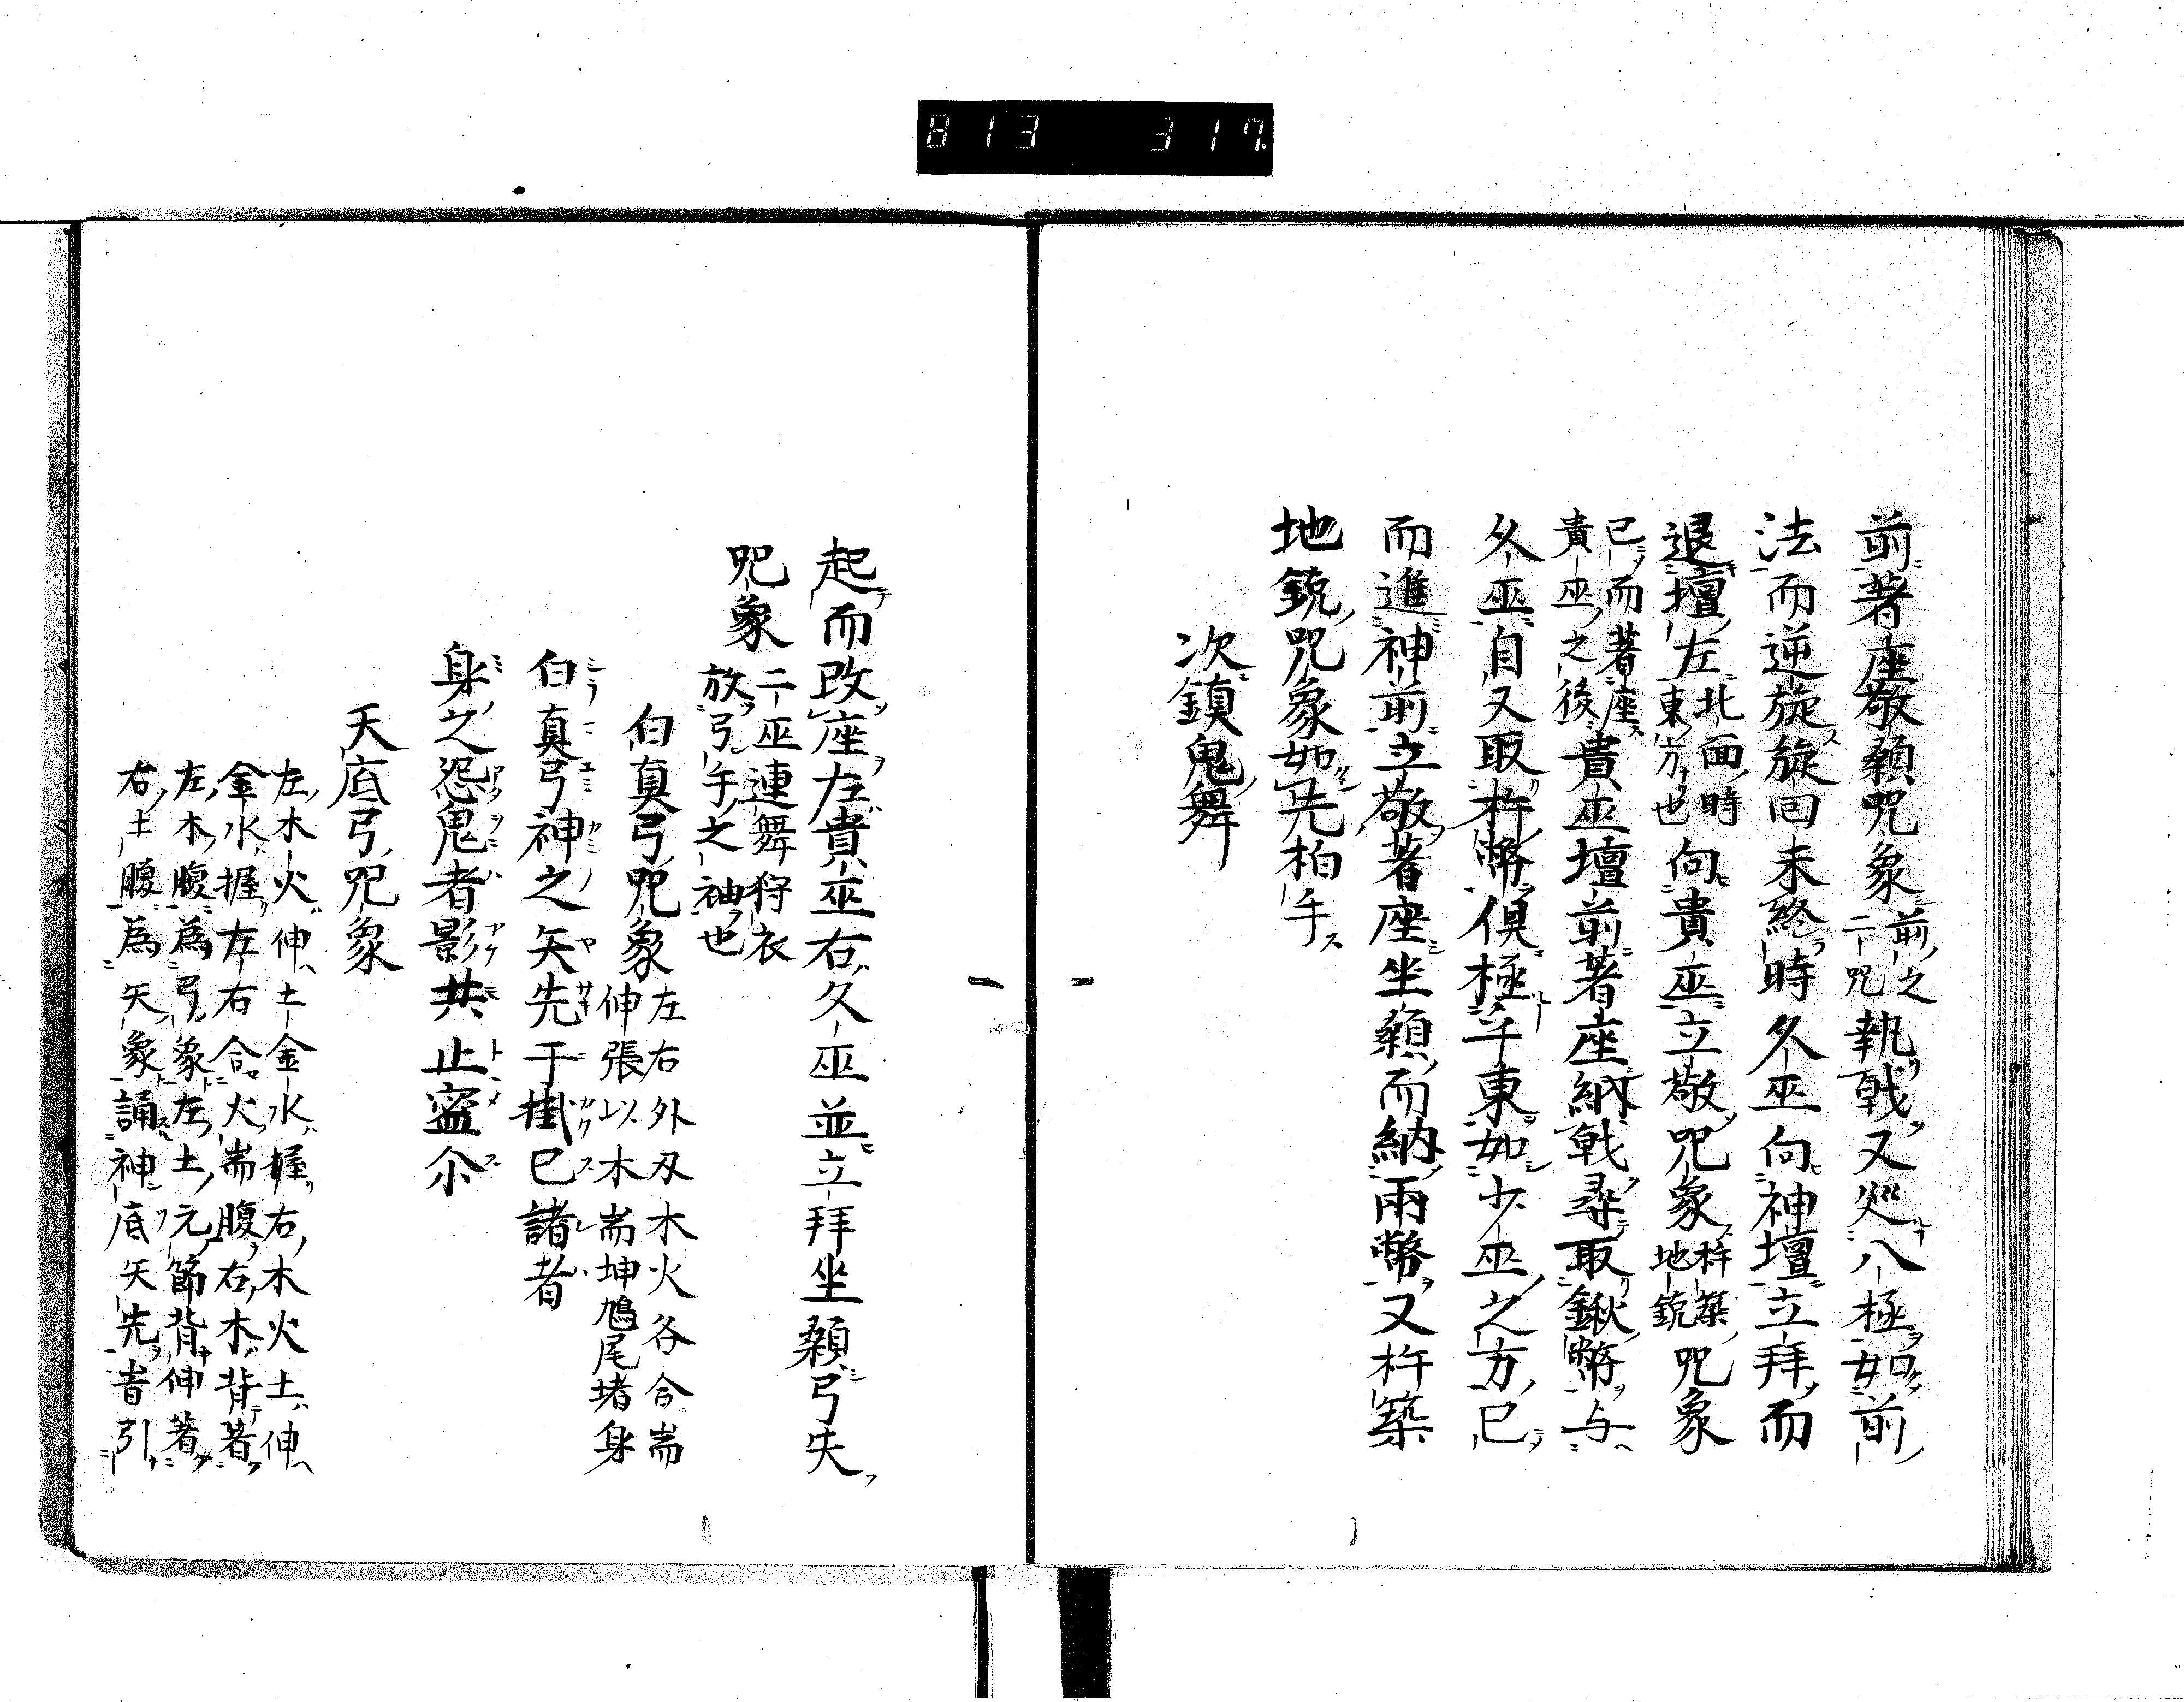 813 317
前著座敬顙咒象前之二咒執戟又巡八極如前
法而逆旋旋回未終時久巫向神壇立拜而
退壇左北面時東方也向貴巫立敬咒象杵築地鋭咒象
已而著座貴巫之後貴巫壇前著座納戟尋取鍬幣与
久巫自又取杵幣俱極千東如少巫之方已
而進神前立敬著座坐顙而納兩幣又杵築
地鋭咒象如先柏手
次鎮鬼舞
起而改座左貴巫右久巫並立拜坐顙弓失
咒象二巫連舞狩衣放弓手之袖也
白真弓咒象左右外刄木火各合耑伸張以木耑坤鳩尾堵身
白真弓神之矢先于掛巳諸者
身之怨鬼者影共止盗尒
天底弓咒象
左木火伸土金水握右木火土伸
金水握左右合火耑腹右木背著
左木腹為弓象左土元節背伸著
右土腹為矢象誦神底矢先者引